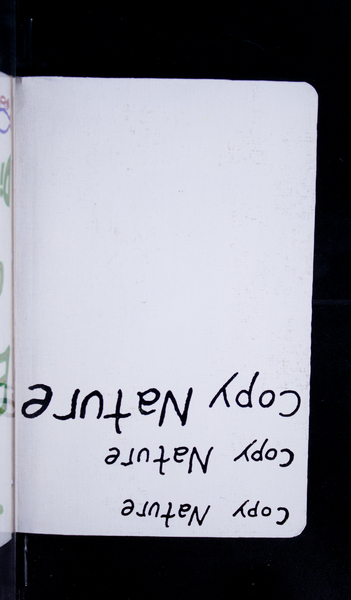 Copy Nature
Copy Nature
Copy Nature